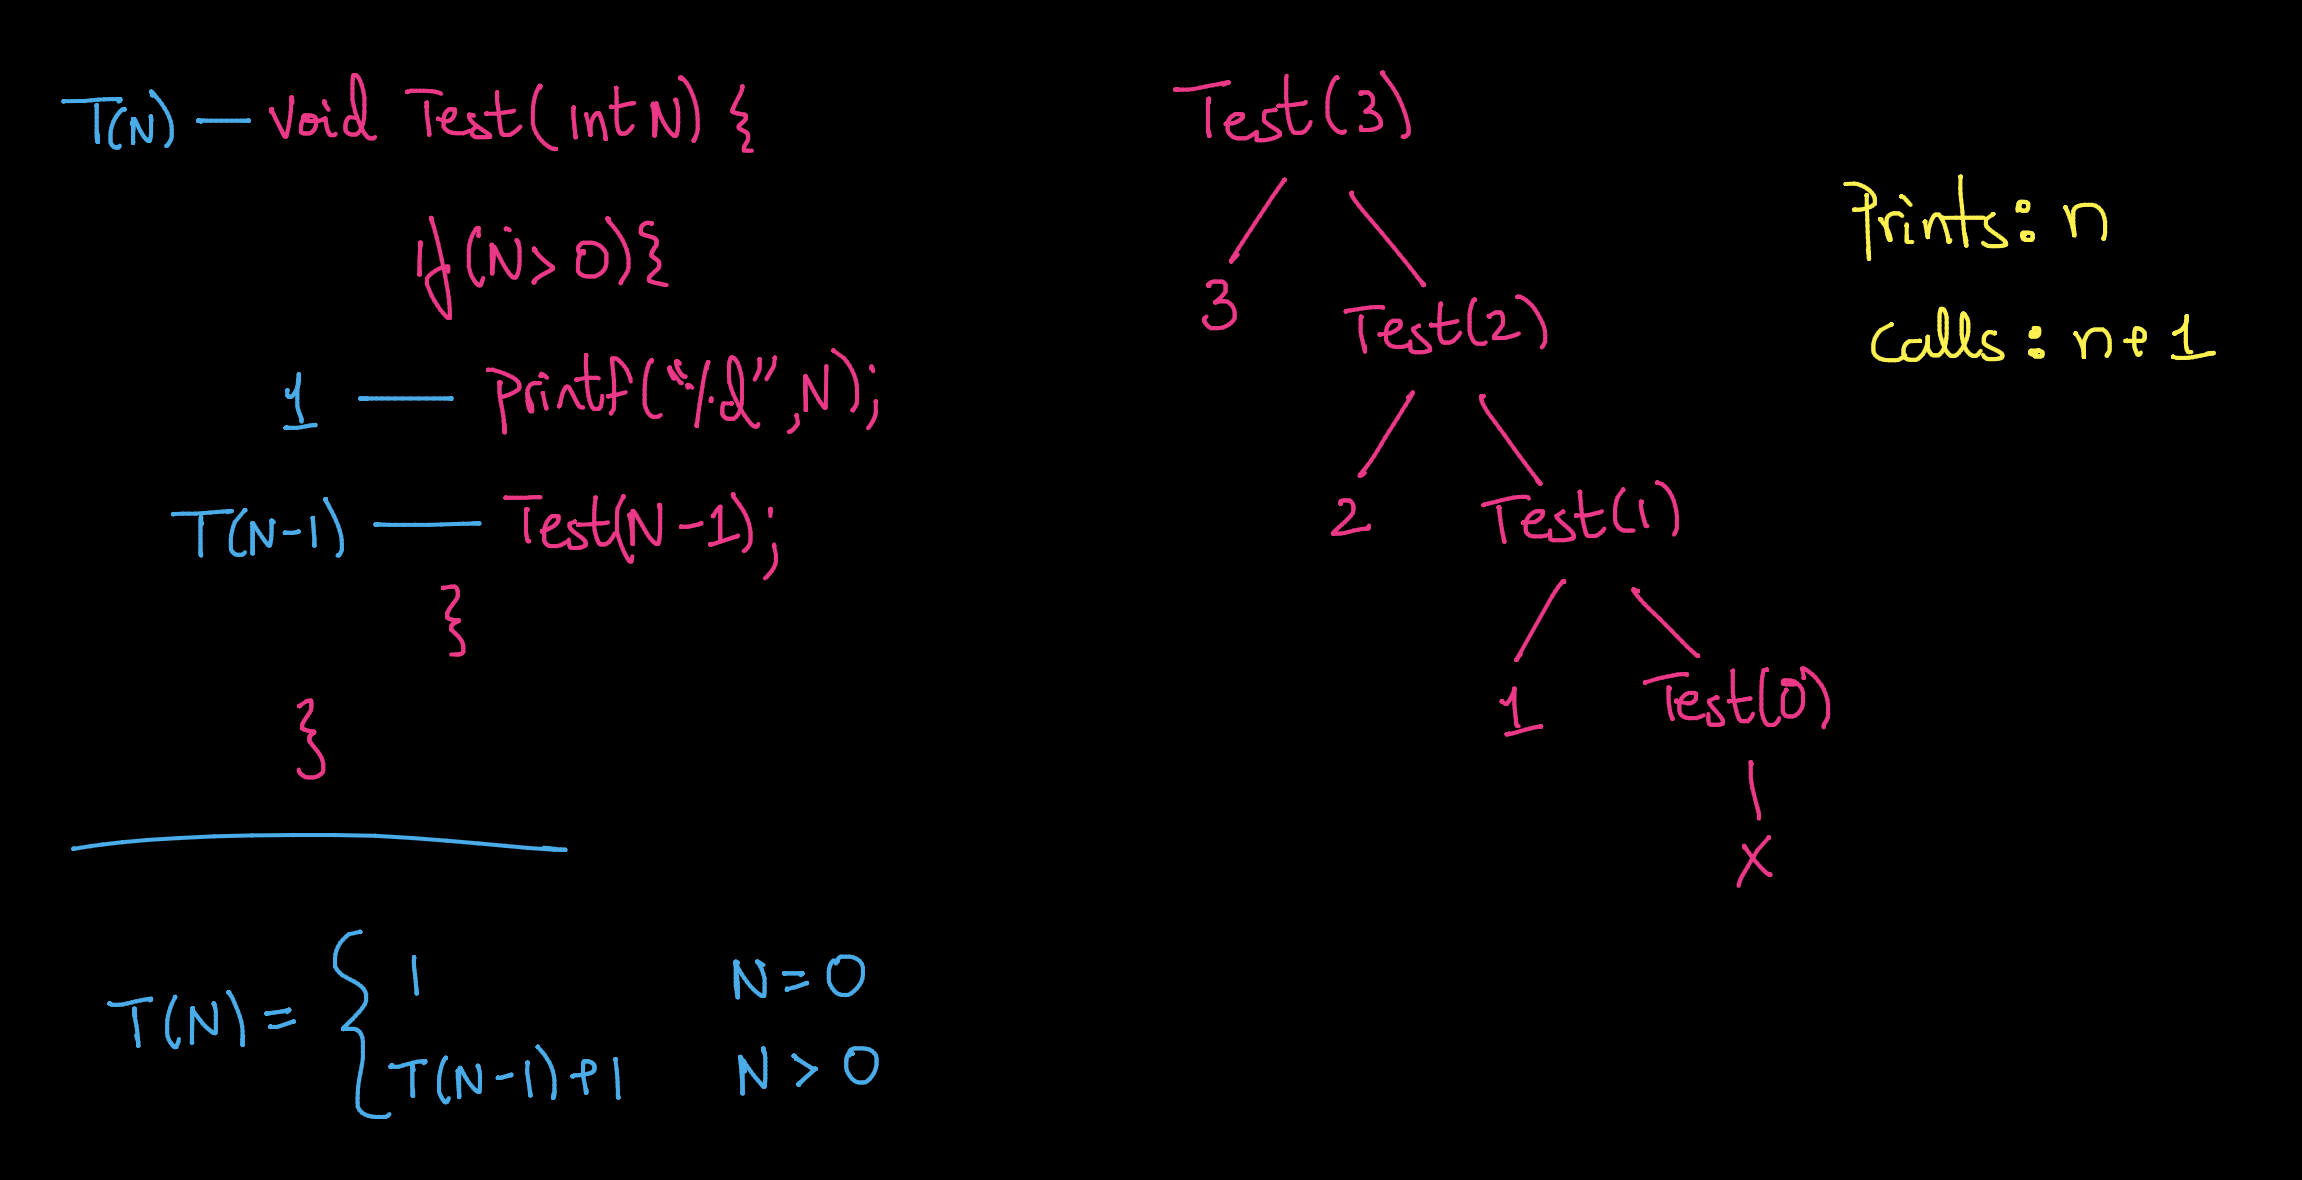 T(N) — void Test(int N) {
if(N>0){
1 — printf("%d",N);
T(N-1) — Test(N-1);
}
}
T(N) = {
1 N=0
T(N-1)+1 N>0
Test(3)
3
Test(2)
2
Test(1)
1
Test(0)
X
Prints: n
Calls: n+1